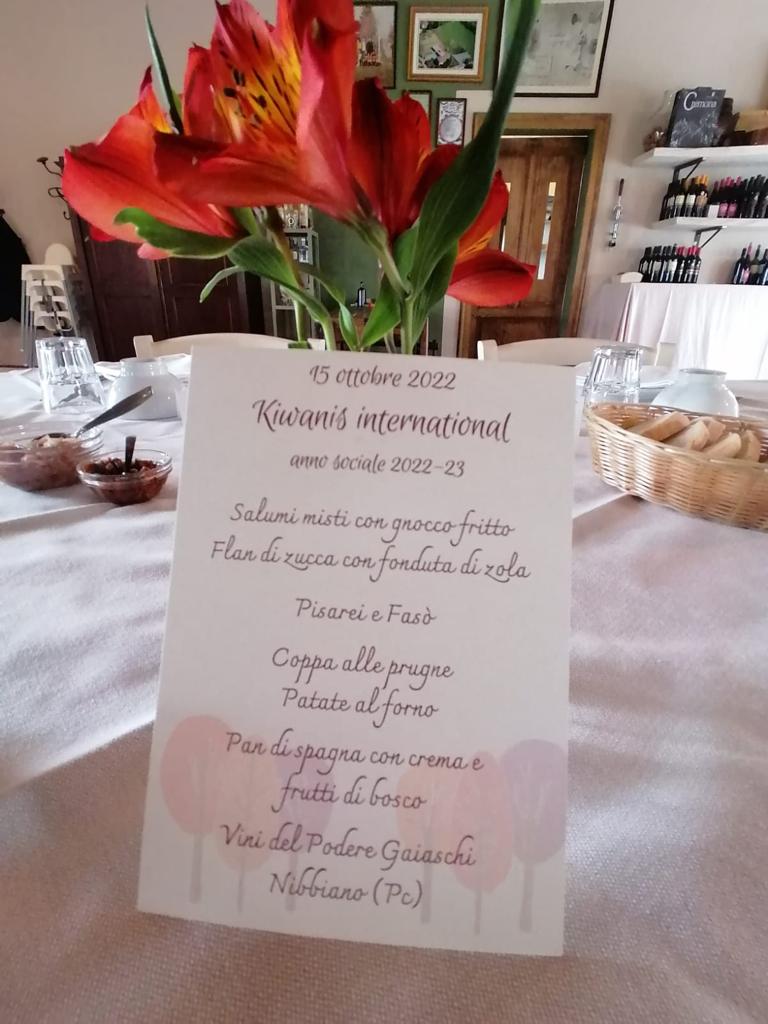 15 ottobre 2022
Kiwanis international
anno sociale 2022-23
Salumi misti con gnocco fritto
Flan di zucca con fonduta di zola
Pisarei e Fasò
Coppa alle prugne
Patate al forno
Pan di spagna con crema e
frutti di bosco
Vini del Podere Gaiaschi
Nibbiano (Pc)